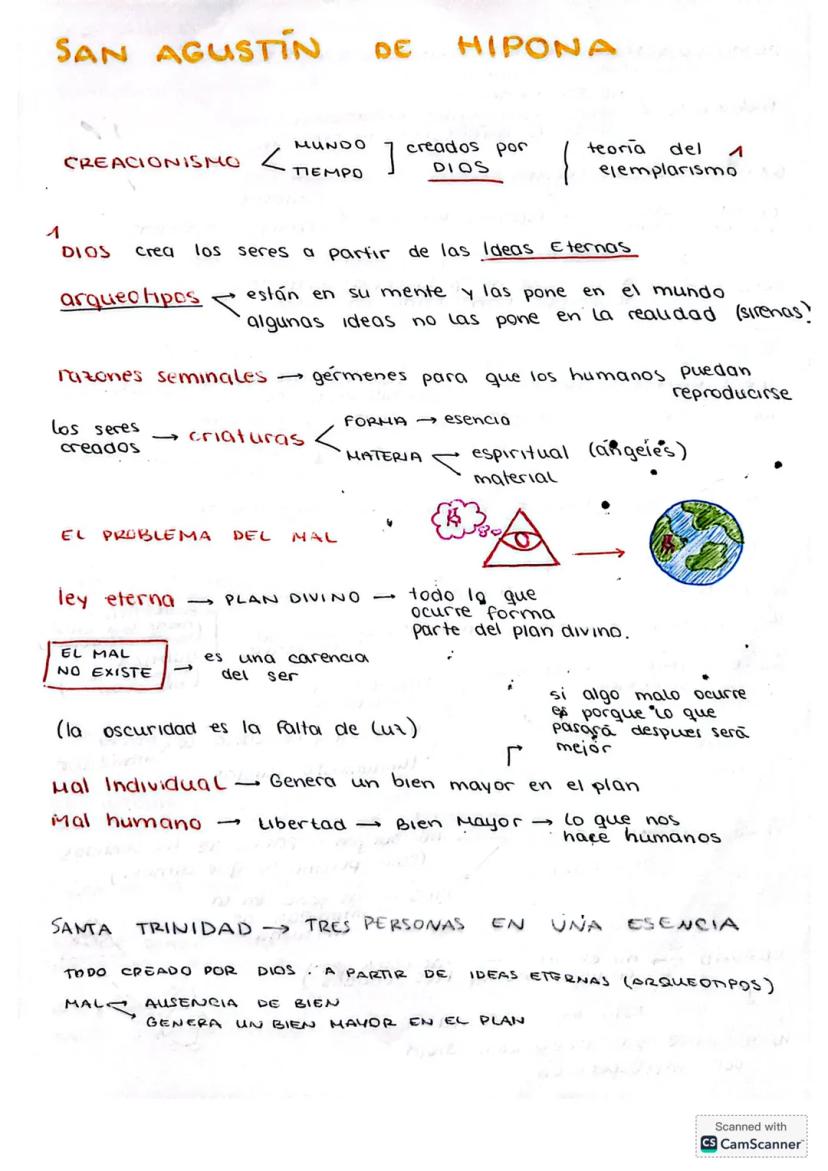 SAN AGUSTÍN DE HIPONA
CREACIONISMO < MUNDO
TIEMPO ] creados por
DIOS
teoría del 1
ejemplarismo
1
DIOS crea los seres a partir de las Ideas Eternas
arqueotipos → están en su mente y las pone en el mundo
algunas ideas no las pone en la realidad (sirenas)
razones seminales → gérmenes para que los humanos puedan
reproducirse
los seres
creados → criaturas < FORMA → esencia
MATERIA → espiritual (ángeles)
material
EL PROBLEMA DEL MAL
ley eterna → PLAN DIVINO → todo lo que
ocurre forma
parte del plan divino.
EL MAL
NO EXISTE → es una carencia
del ser
(la oscuridad es la falta de luz)
si algo malo ocurre
es porque lo que
pasará despues será
mejor
Mal Individual → Genera un bien mayor en el plan
Mal humano → Libertad → Bien Mayor → Lo que nos
hace humanos
SANTA TRINIDAD → TRES PERSONAS EN UNA ESENCIA
TODO CREADO POR DIOS. A PARTIR DE IDEAS ETERNAS (ARQUEOTIPOS)
MAL → AUSENCIA DE BIEN
GENERA UN BIEN MAYOR EN EL PLAN
Scanned with
CS CamScanner